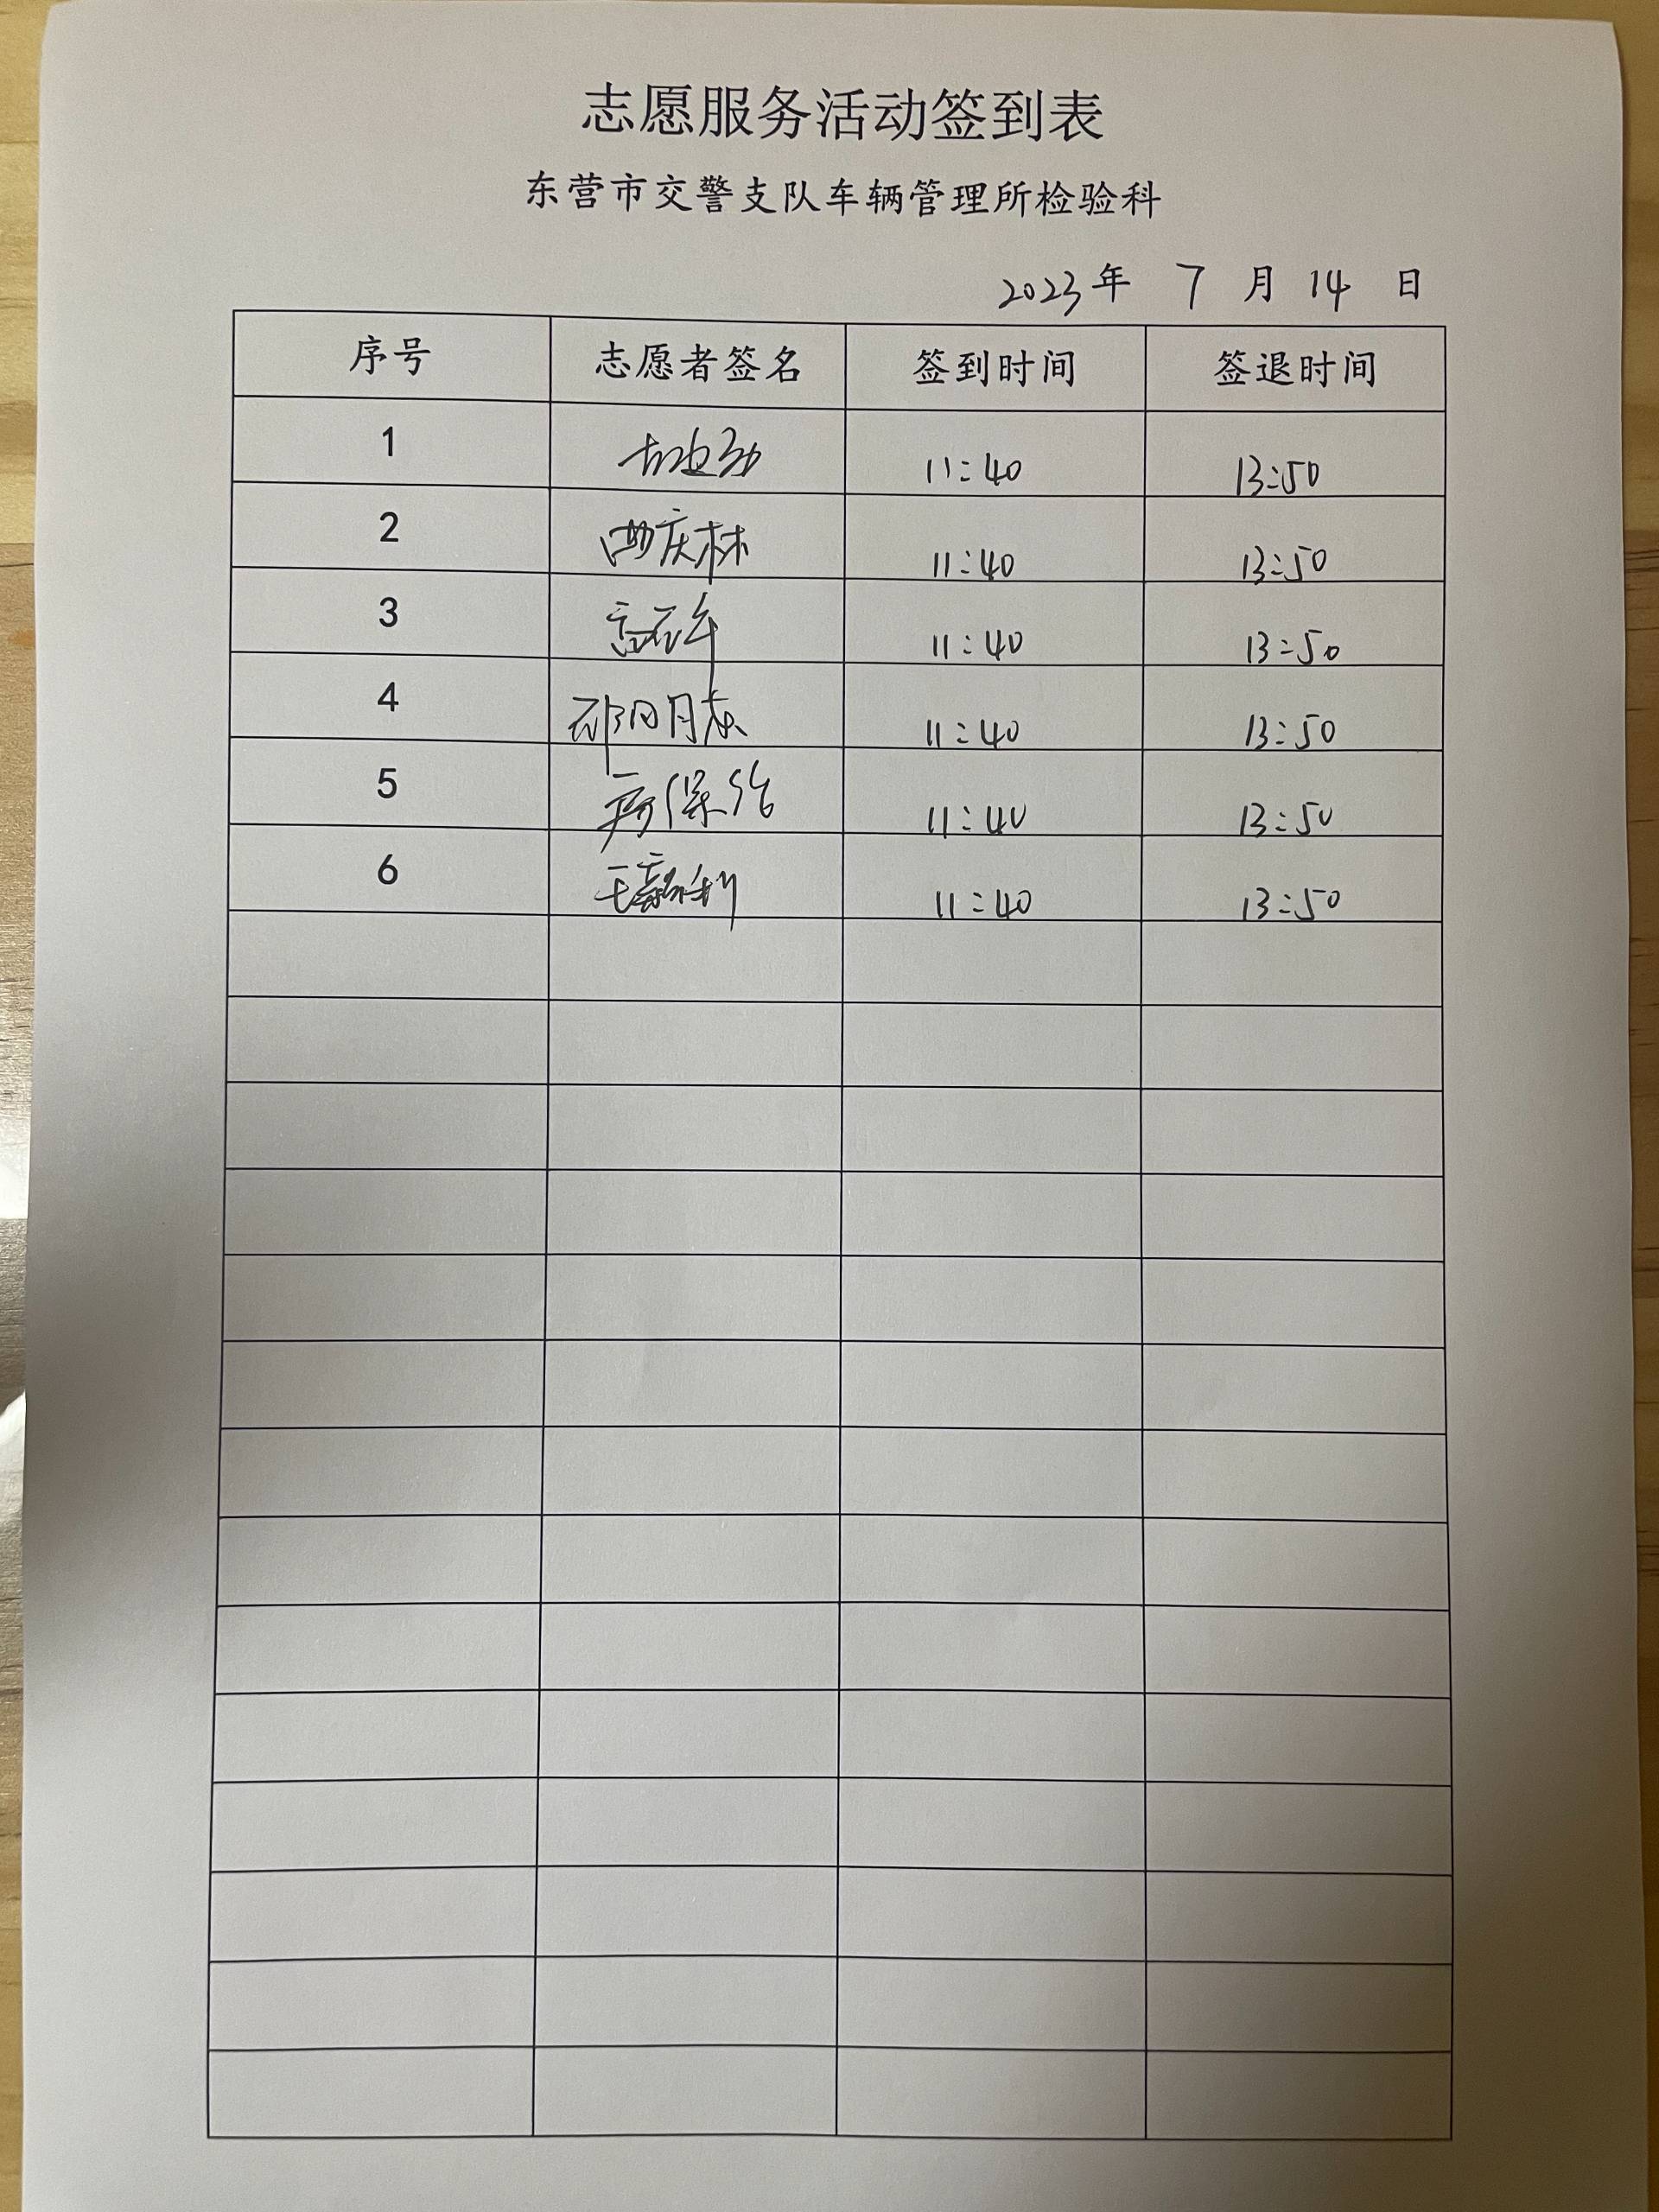 志愿服务活动签到表
东营市交警支队车辆管理所检验科
2023年 7 月 14 日
序号 志愿者签名 签到时间 签退时间
1 11:40 13:50
2 庆林 11:40 13:50
3 11:40 13:50
4 11:40 13:50
5 11:40 13:50
6 11:40 13:50